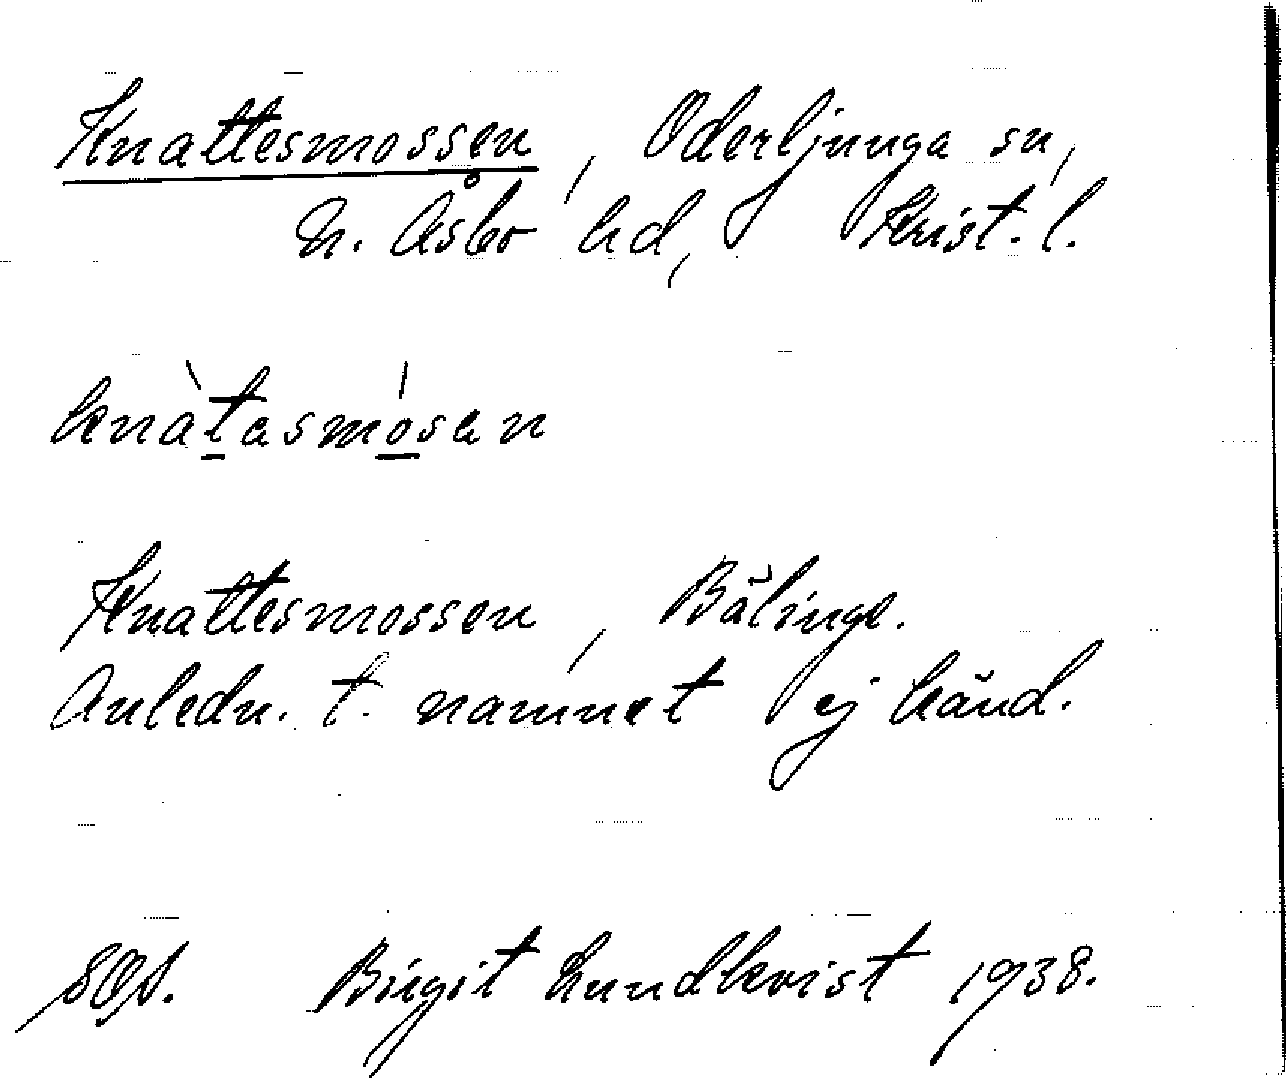 Knattesmossen, Oderljunga sn,
N. Åsbo hd, Krist. l.
knàtasmósan
Knattesmossen, Bälinge.
Anledn. t. namnet ej känd.
Birgit Lundkvist 1938.